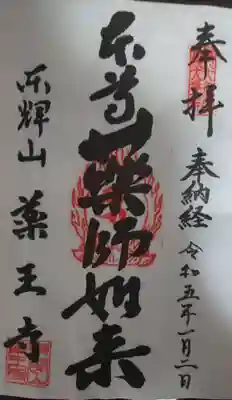 奉拝
奉納経 令和五年一月二日
本尊藥師如来
東輝山 薬王寺